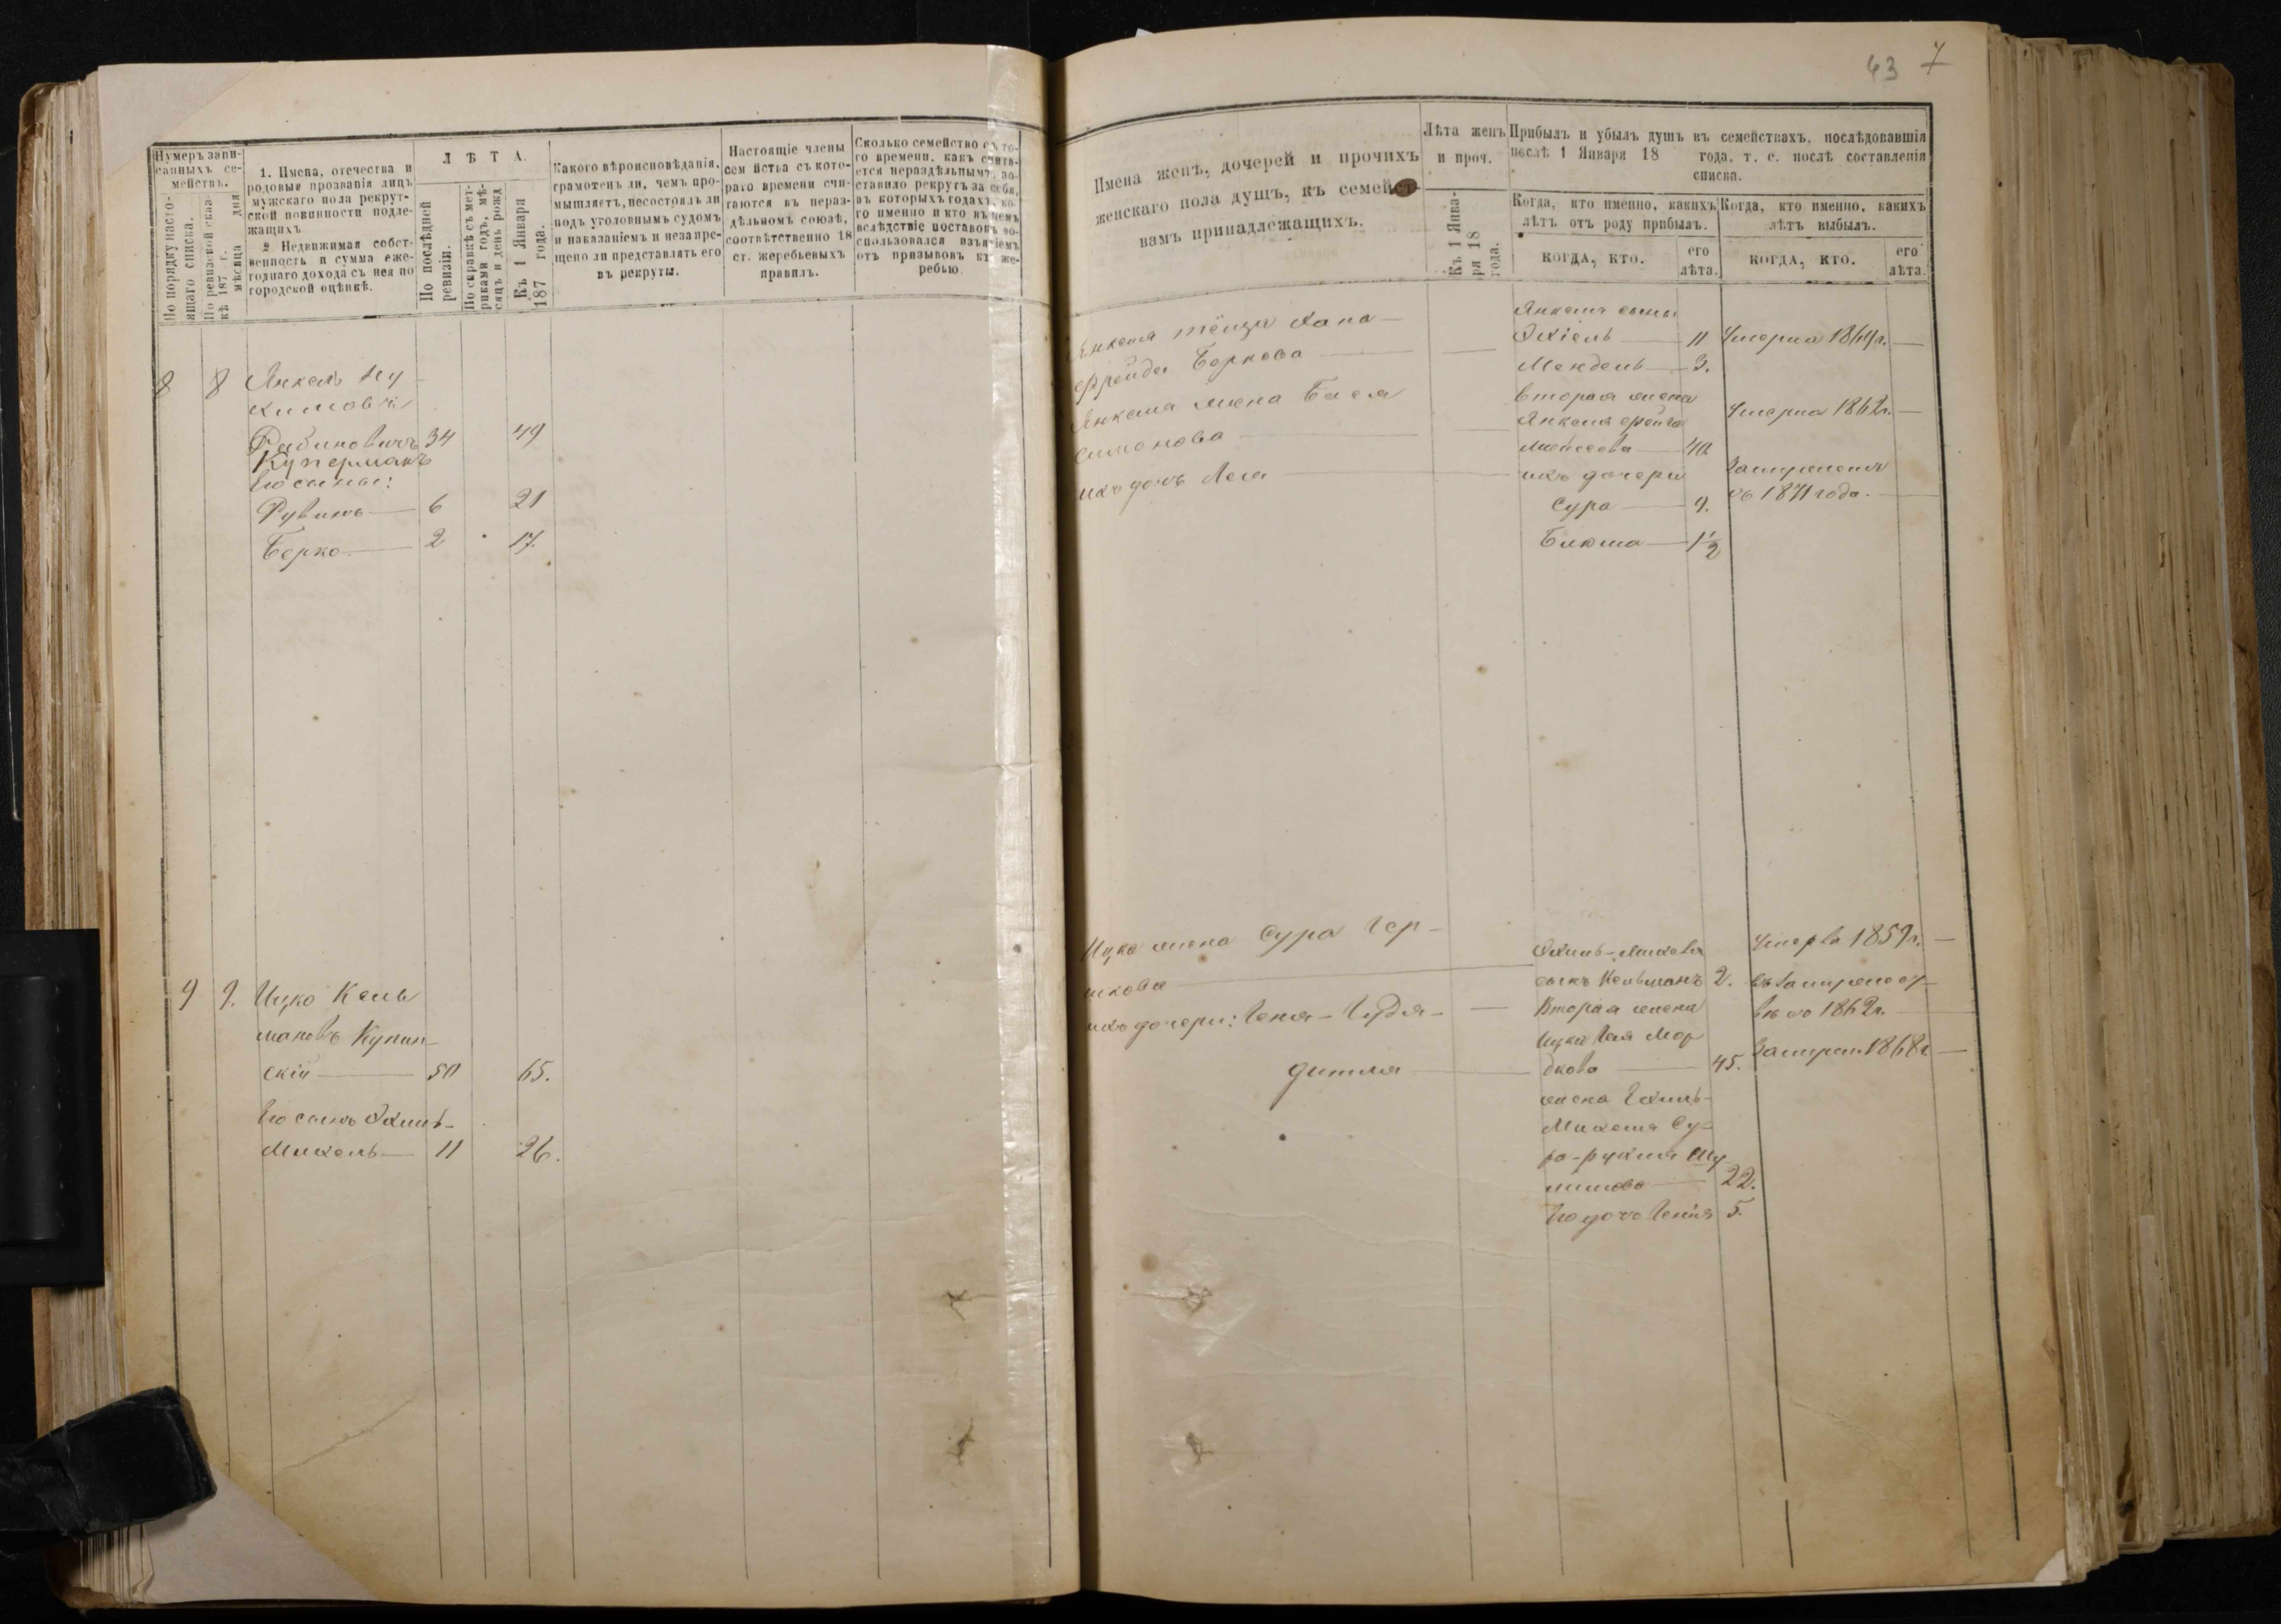 43 7
Нумеръ запи-
санныхъ се-
мействъ.
По порядку насто-
ящаго списка.
По ревизской сказ-
кѣ 187 г.
мѣсяца дня
1. Имена, отечества и
родовыя прозванія лицъ
мужскаго пола рекрут-
ской повинности подле-
жащихъ
2. Недвижимая собст-
венность и сумма еже-
годнаго дохода съ нея по
городской оцѣнкѣ.
ЛѢТА.
По послѣдней
ревизіи.
По справкѣ съ мет-
риками годъ, мѣ-
сяцъ и день рожд
Къ 1 Января
187 года.
Какого вѣроисповѣданія,
грамотенъ ли, чемъ про-
мышляетъ, несостоялъ ли
подъ уголовнымъ судомъ
и наказаніемъ и незапре-
щено ли представлять его
въ рекруты.
Настоящіе члены
сем йства съ кото-
раго времени счи-
таются въ нераз-
дѣльномъ союзѣ,
соотвѣтственно 18
ст. жеребьевыхъ
правилъ.
Сколько семейство съ то-
го времени, какъ счита-
ется нераздѣльнымъ, по-
ставило рекрутъ за себя,
въ которыхъ годахъ, ко-
го именно и кто въ немъ
вслѣдствіе поставокъ во-
спользовался изъятіемъ
отъ призывовъ къ же-
ребью.
8 8 Янкель Ну
химовъ
Рабиновичъ 34 49
Куперманъ
Его сыны:
Рувинъ 6 21
Берко 2 17.
9 9. Ицко Кель
мановъ Купин-
скій 50 65.
Его сынъ Хаимъ-
Михель 11 26.
Имена женъ, дочерей и прочихъ
женскаго пола душъ, къ семейст-
вамъ принадлежащихъ.
Лѣта женъ
и проч.
Къ 1 Янва-
ря 18
года.
Прибылъ и убылъ душъ въ семействахъ, послѣдовавшія
послѣ 1 Января 18 года, т. е. послѣ составленія
списка.
Когда, кто именно, какихъ
лѣтъ отъ роду прибылъ.
Когда, кто именно, какихъ
лѣтъ выбылъ.
КОГДА, КТО.
его
лѣта.
КОГДА, КТО.
его
лѣта.
Янкеля тёща Хана-
Фрейда Беркова
Янкеля жена Бася
Симонова
ихъ дочь Лея
Янкеля сыны
11
Мендель 3.
вторая жена
Янкеля Фейга
Мойсеева 40
ихъ дочери
Сура 9.
Блюма 1 1/2
Умерла 1869 г.
Умерла 1862 г.
Замужемъ
съ 1871 года.
Ицка жена Сура Гер-
шкова
ихъ дочери: Геня-Гудя-
Хаимъ-Михеля
сынъ Кельманъ 2.
Вторая жена
Ицка Мор
дкова 45.
жена Хаимъ-
Михеля Су-
ра-Рухля Шу
лимова 22.
Его дочь Геня 5.
Умерла 1859 г.
съ 1862 г.
Замужем 1868 г.